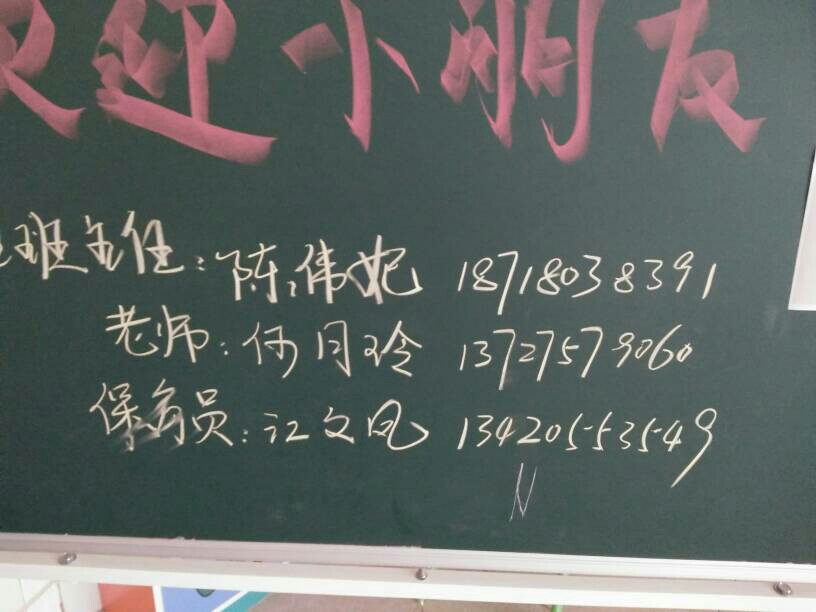 迎小朋友
班主任：陈伟妮 18718038391
老师：何月玲 13727579060
保育员：江文凤 13420553549
N